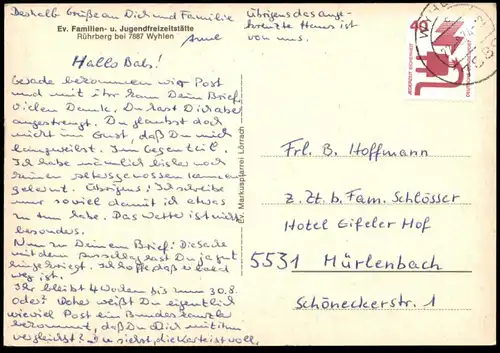 Deshalb Grüße an Dich und Familie
Arne
Übrigens das ange-
kreuzte Haus ist
von uns.
Ev. Familien- u. Jugendfreizeitstätte
Rührberg bei 7887 Wyhlen
Hallo Babs!
Gerade bekommen wir Post
und mit ihr kam Dein Brief.
Vielen Dank. Du hast Dich aber
angestrengt. Du glaubst doch
nicht im Ernst, daß Du mich
langweilst. Im Gegenteil.
Ich habe nämlich bisher noch
keinen altersgenossen kennen
gelernt. Übrigens: Ich schreibe
nur soviel damit ich etwas
zu tun habe. Das Wetter ist nicht
besonders.
Nun zu Deinem Brief: Die Sache
mit dem Ausschlag hast Du ja gut
hingekriegt. Ich hoffe, daß er bald
weg ist.
Ihr bleibt 4 Wochen bis zum 30.8.
oder? Woher weißt Du eigentlich
wieviel Post ein Bundeskanzler
bekommt, daß Du Dich mit ihm
vergleichst? Du siehst, die Karte ist voll,
Ev. Markuspfarrei Lörrach
40
JEDERZEIT SICHERHEIT
Frl. B. Hoffmann
z. Zt. b. Fam. Schlösser
Hotel Eifeler Hof
5531 Mürlenbach
Schöneckerstr. 1